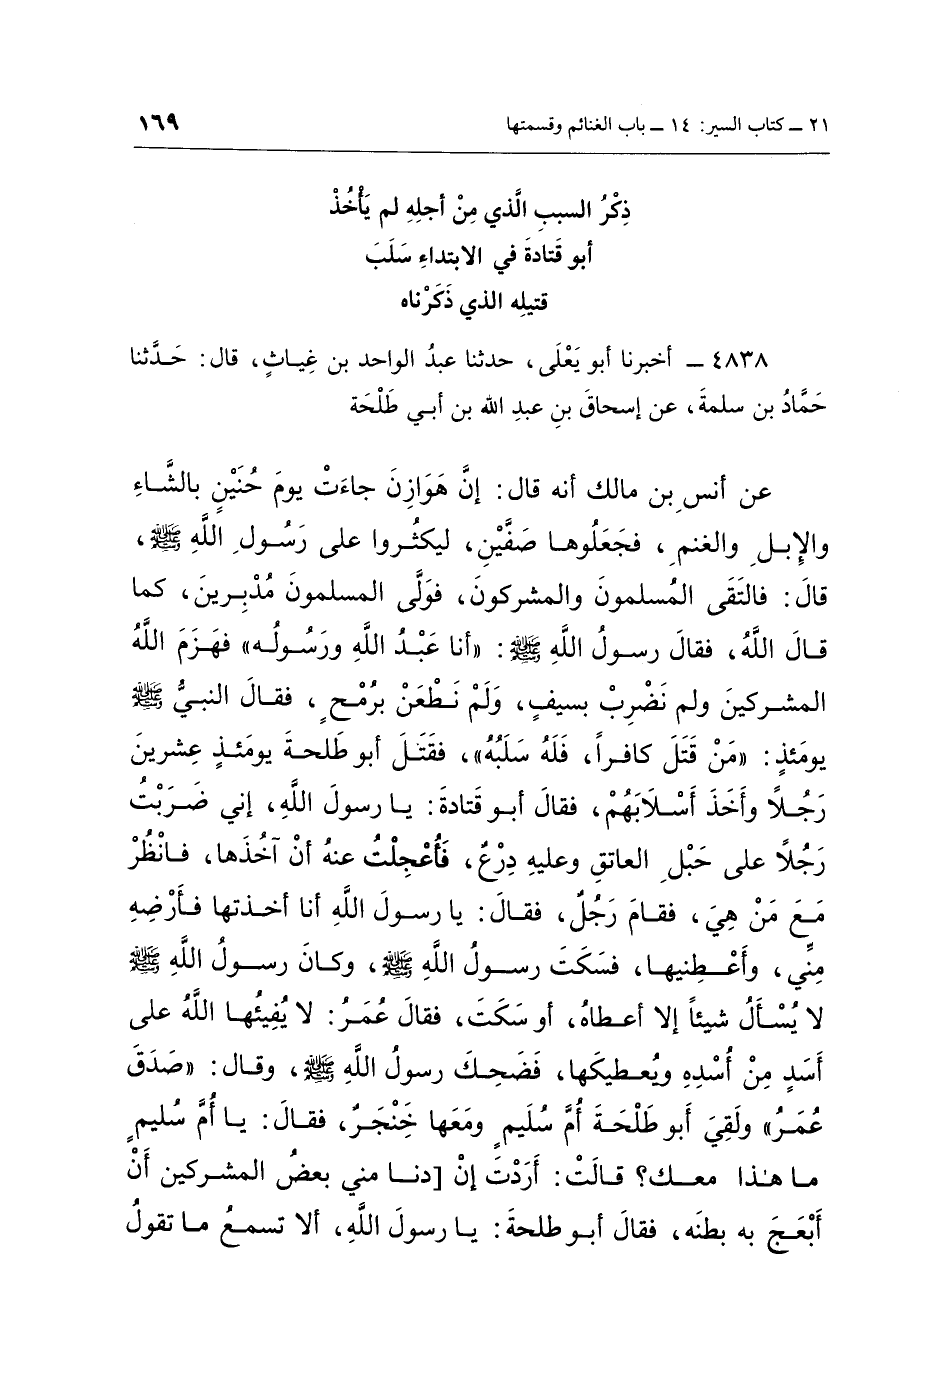 ٢١ ـ كتاب السير: ١٤ ـ باب الغنائم وقسمتها ١٦٩
ذِكْرُ السببِ الَّذي مِنْ أجلِهِ لم يَأْخُذْ
أبو قَتادةَ في الابتداءِ سَلَبَ
قتيلِه الذي ذَكَرْناه
٤٨٣٨ ـ أخبرنا أبو يَعْلَى، حدثنا عبدُ الواحد بن غِياثٍ، قال: حَدَّثنا
حَمَّادُ بن سلمةَ، عن إسحاقَ بنِ عبدِ الله بن أبي طَلْحَة
عن أنسِ بن مالك أنه قال: إنَّ هَوَازِنَ جاءَتْ يومَ حُنَيْنٍ بالشَّاءِ
والإِبلِ والغنمِ، فجَعَلُوها صَفَّيْنِ، ليكثُروا على رَسُولِ اللَّهِ ﷺ،
قالَ: فالتَقَى المُسلمونَ والمشركونَ، فوَلَّى المسلمونَ مُدْبِرينَ، كما
قالَ اللَّهُ، فقالَ رسولُ اللَّهِ ﷺ: «أنا عَبْدُ اللَّهِ ورَسُولُه» فهَزَمَ اللَّهُ
المشركينَ ولم نَضْرِبْ بسيفٍ، وَلَمْ نَطْعَنْ بِرُمْحٍ، فقالَ النبيُّ ﷺ
يومَئذٍ: «مَنْ قَتَلَ كافراً، فَلَهُ سَلَبُهُ»، فقَتَلَ أبو طَلحةَ يومَئذٍ عِشرينَ
رَجُلاً وأَخَذَ أَسْلَابَهُمْ، فقالَ أبو قَتادةَ: يا رسولَ اللَّهِ، إني ضَرَبْتُ
رَجُلاً على حَبْلِ العاتقِ وعليهِ دِرْعٌ، فَأُعْجِلْتُ عنهُ أنْ آخُذَها، فانْظُرْ
مَعَ مَنْ هِيَ، فقامَ رَجُلٌ، فقالَ: يا رسولَ اللَّهِ أنا أخذتها فأَرْضِهِ
مِنِّي، وأَعْطِنيها، فسَكَتَ رسولُ اللَّهِ ﷺ، وكانَ رسولُ اللَّهِ ﷺ
لا يُسْأَلُ شيئاً إلا أعطاهُ، أو سَكَتَ، فقالَ عُمَرُ: لا يُفِيئُها اللَّهُ على
أَسَدٍ مِنْ أُسْدِهِ ويُعطيكَها، فَضَحِكَ رسولُ اللَّهِ ﷺ، وقال: «صَدَقَ
عُمَرُ» ولَقِيَ أبو طَلْحَةَ أُمَّ سُلَيمٍ ومَعَها خِنْجَرٌ، فقالَ: يا أُمَّ سُليمٍ
ما هٰذا معك؟ قالَتْ: أَرَدْتُ إنْ [دنا مني بعضُ المشركين أنْ
أَبْعَجَ به بطنَه، فقالَ أبو طلحةَ: يا رسولَ اللَّهِ، ألا تسمعُ ما تقولُ